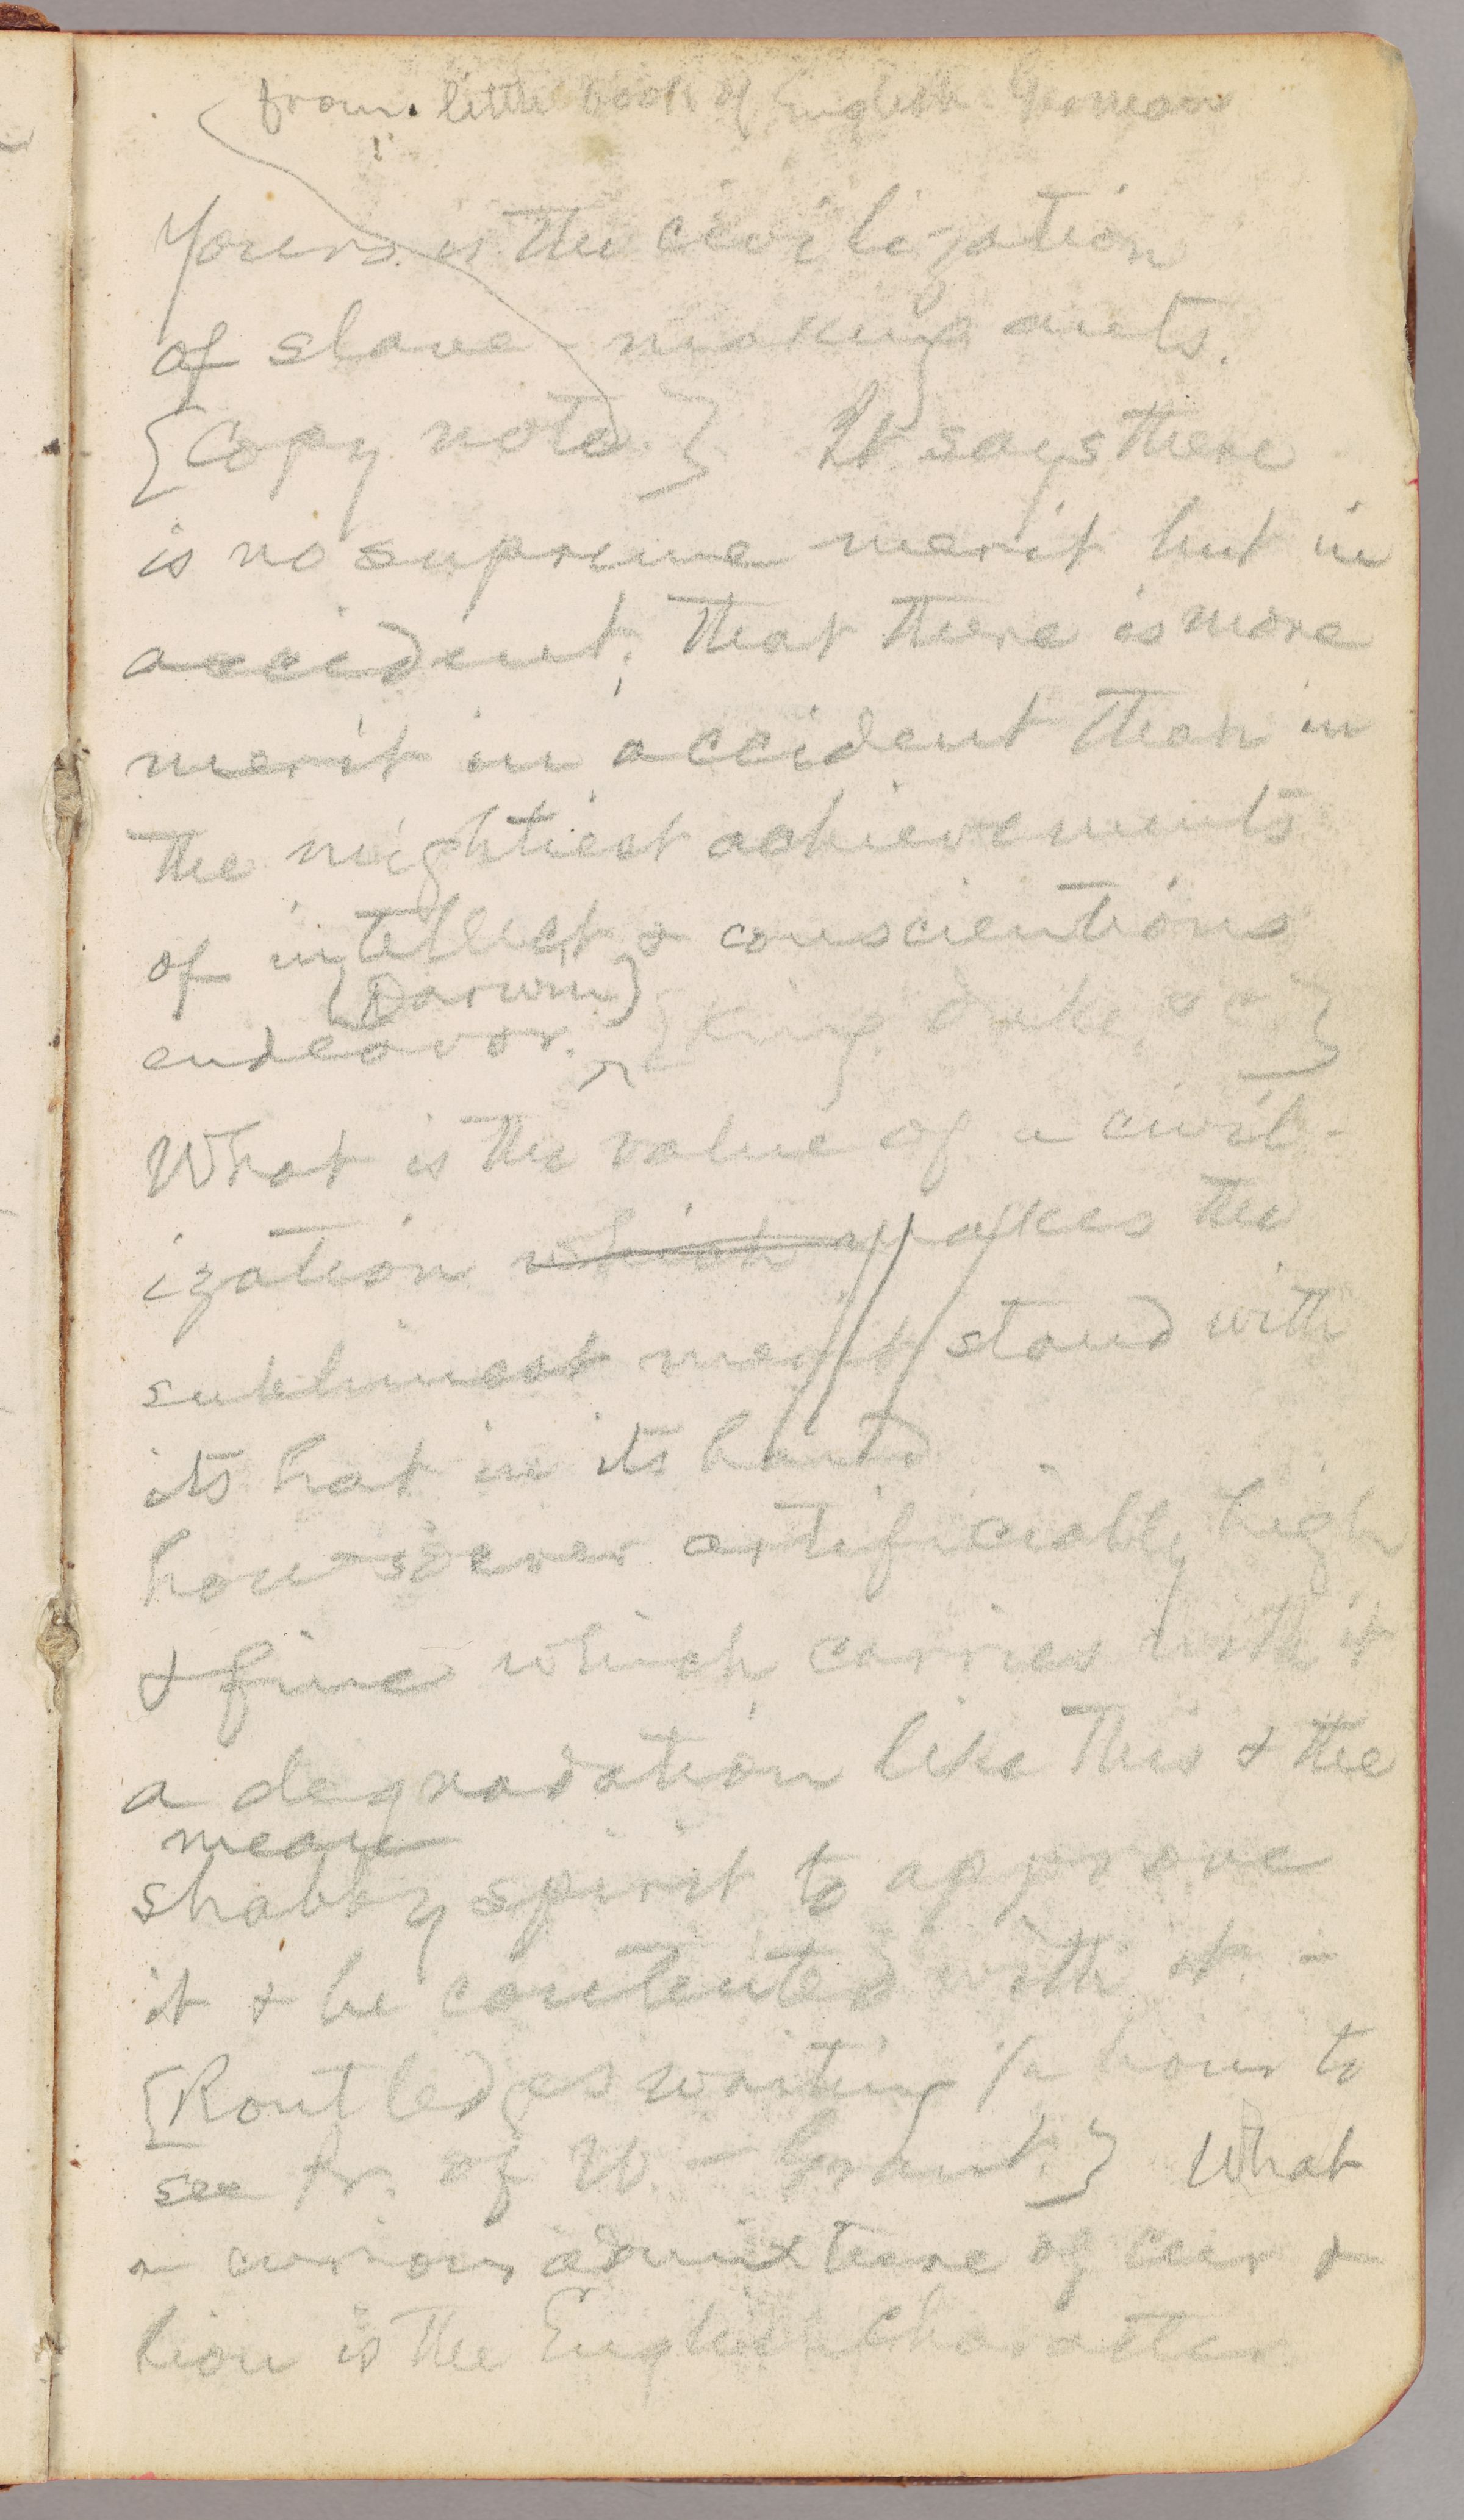 from little book of English-German
Yours is the civilization
of slave-making ants.
{Copy note.} It says there
is no supreme merit but in
accident; that there is more
merit in accident than in
the mightiest achievements
of intellect & conscientious
{Darwin}
endeavor. {King, duke, &c}
What is the value of a civil-
ization which makes the
sublimest merit stand with
its hat in its hand
howsoever artificially high
& fine which carries with it
a degradation like this & the
mean
shabby spirit to approve
it & be contented with it. —
{Routledge waiting ½ hour to
see Pr. of W — Grant.} What
a curious admixture of cur &
lion is the English character.